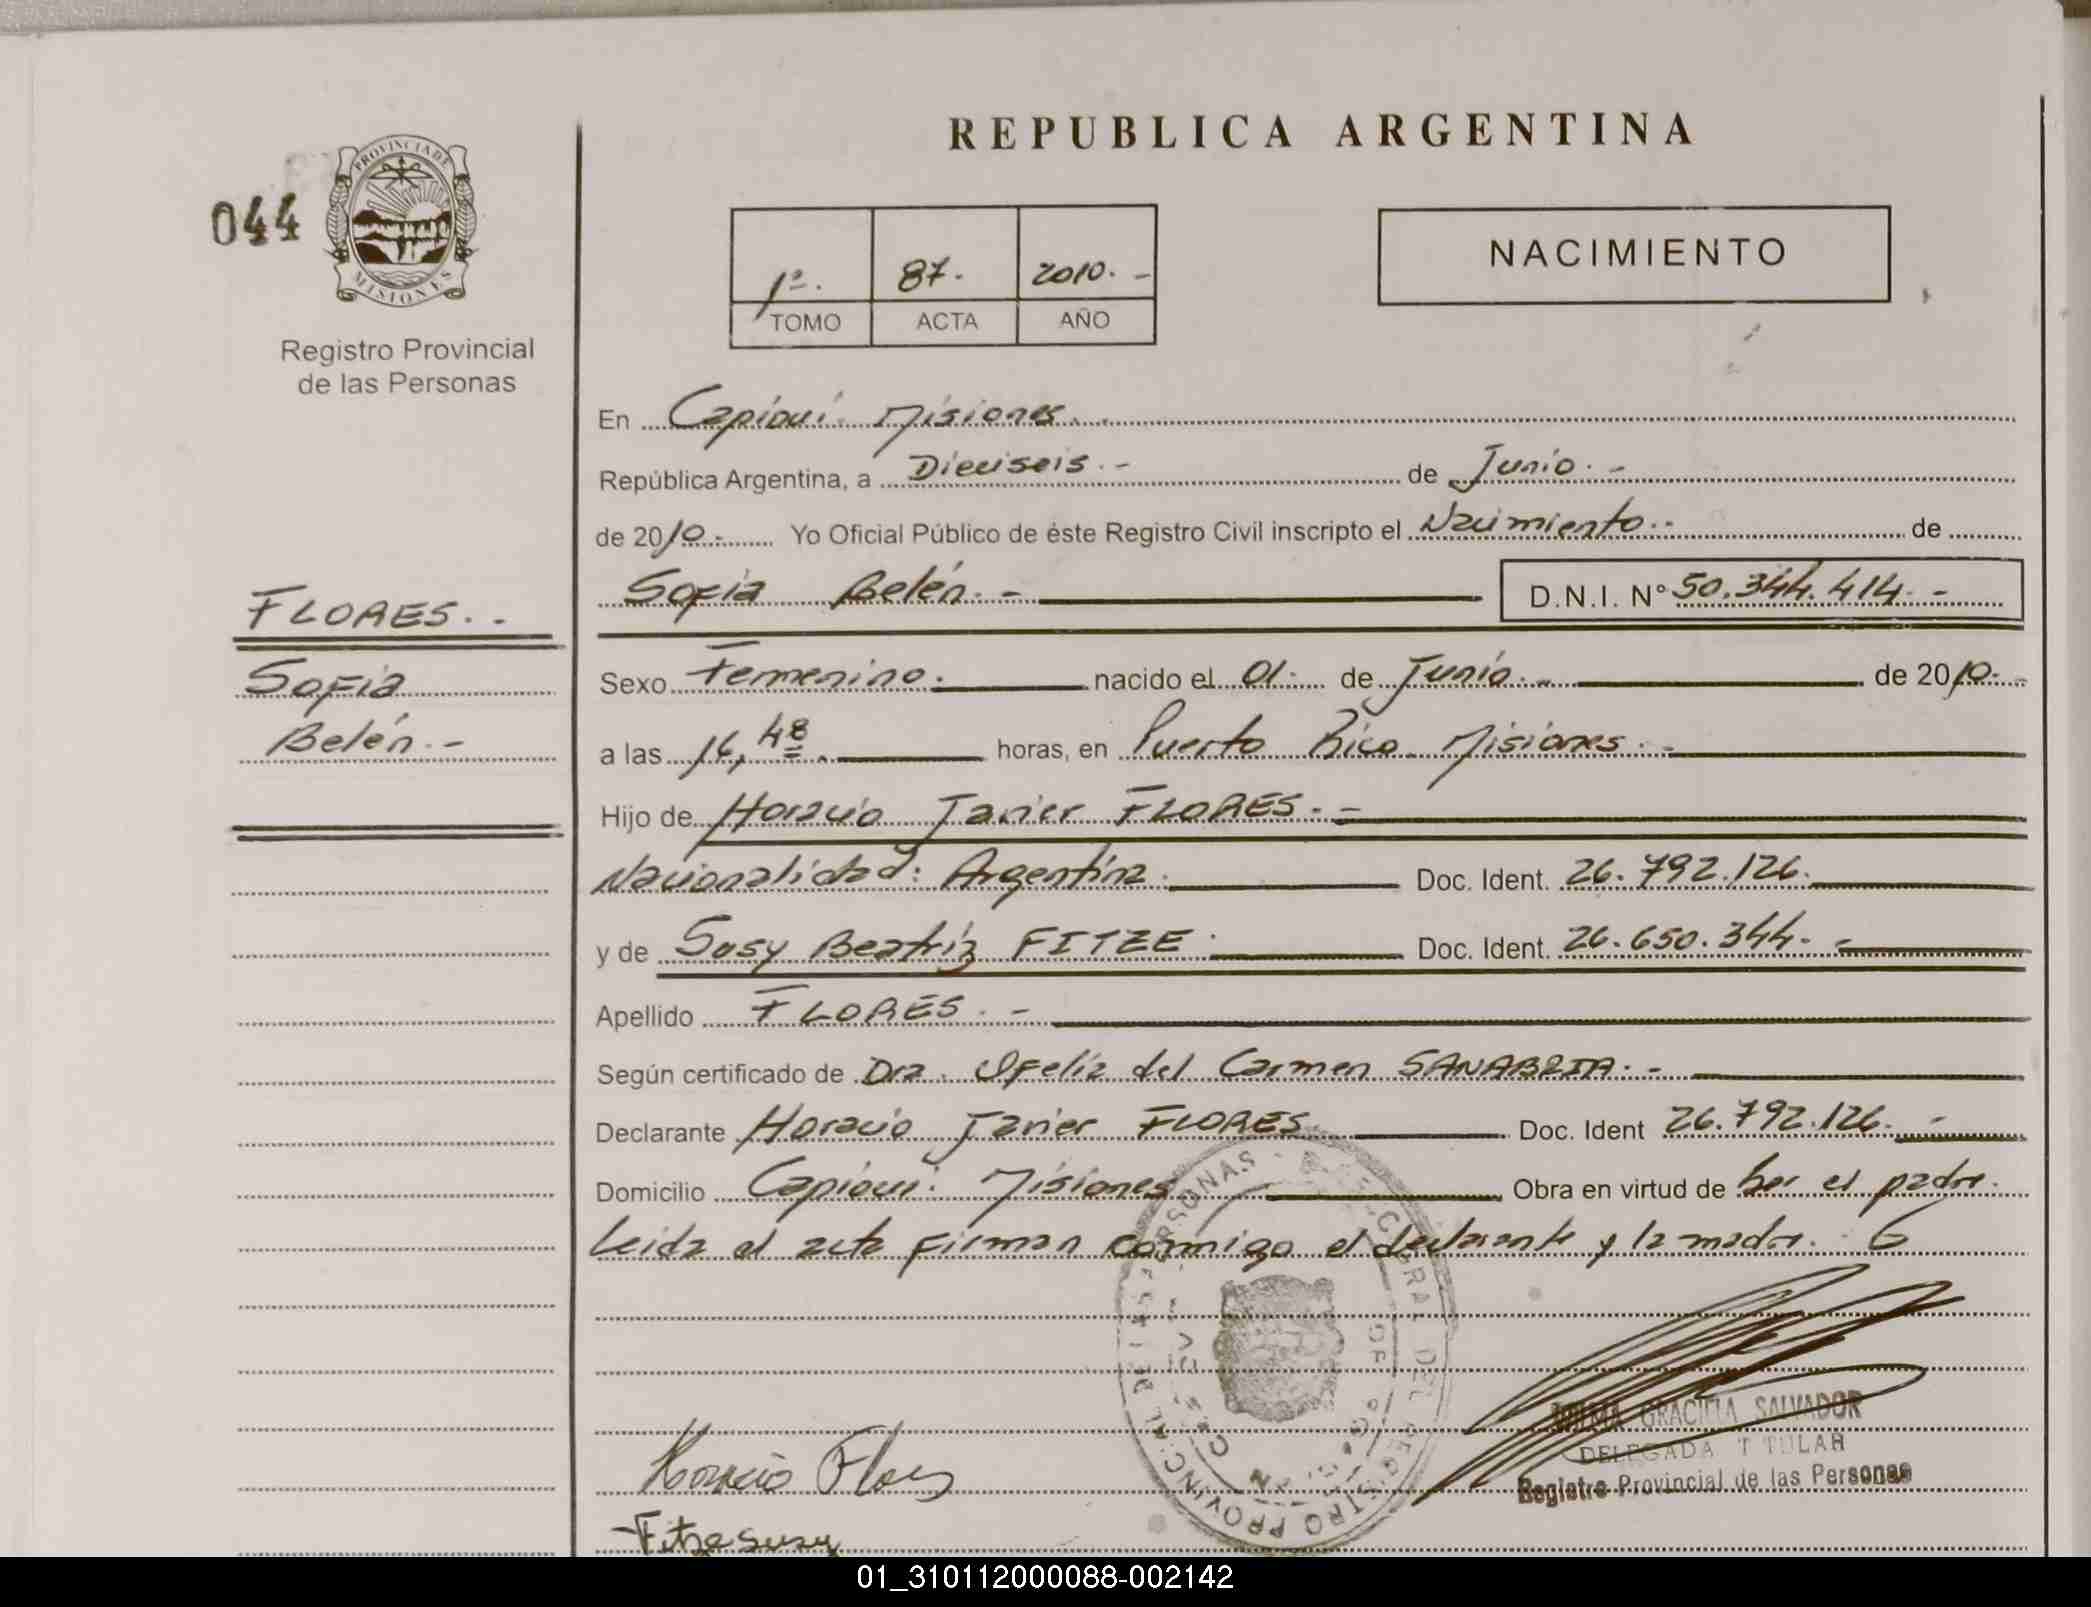 REPUBLICA ARGENTINA
044
PROVINCIA DE
MISIONES
Registro Provincial
de las Personas
1º. 87. 2010. -
TOMO ACTA AÑO
NACIMIENTO
En Capioví. Misiones.
República Argentina, a Dieciseis. - de Junio. -
de 2010.- Yo Oficial Público de éste Registro Civil inscripto el Nacimiento.- de
Sofia Belén. - D.N.I. Nº 50.344.414. -
FLORES. -
Sofia
Belén. -
Sexo Femenino. nacido el 01. de Junio. - de 2010. -
a las 16,48 horas, en Puerto Rico. Misiones. -
Hijo de Horacio Javier FLORES. -
Nacionalidad: Argentina. Doc. Ident. 26.792.126.
y de Susy Beatriz FITZE. Doc. Ident. 26.650.344. -
Apellido FLORES. -
Según certificado de Dra. Ofelia del Carmen SANABRIA. -
Declarante Horacio Javier FLORES Doc. Ident 26.792.126. -
Domicilio Capioví. Misiones Obra en virtud de Ser el padre.
Leida el acta firman conmigo el declarante y la madre.
Horacio Flores
Fitze Susy
GRACIELA SALVADOR
DELEGADA TITULAR
Registro Provincial de las Personas
01_310112000088-002142